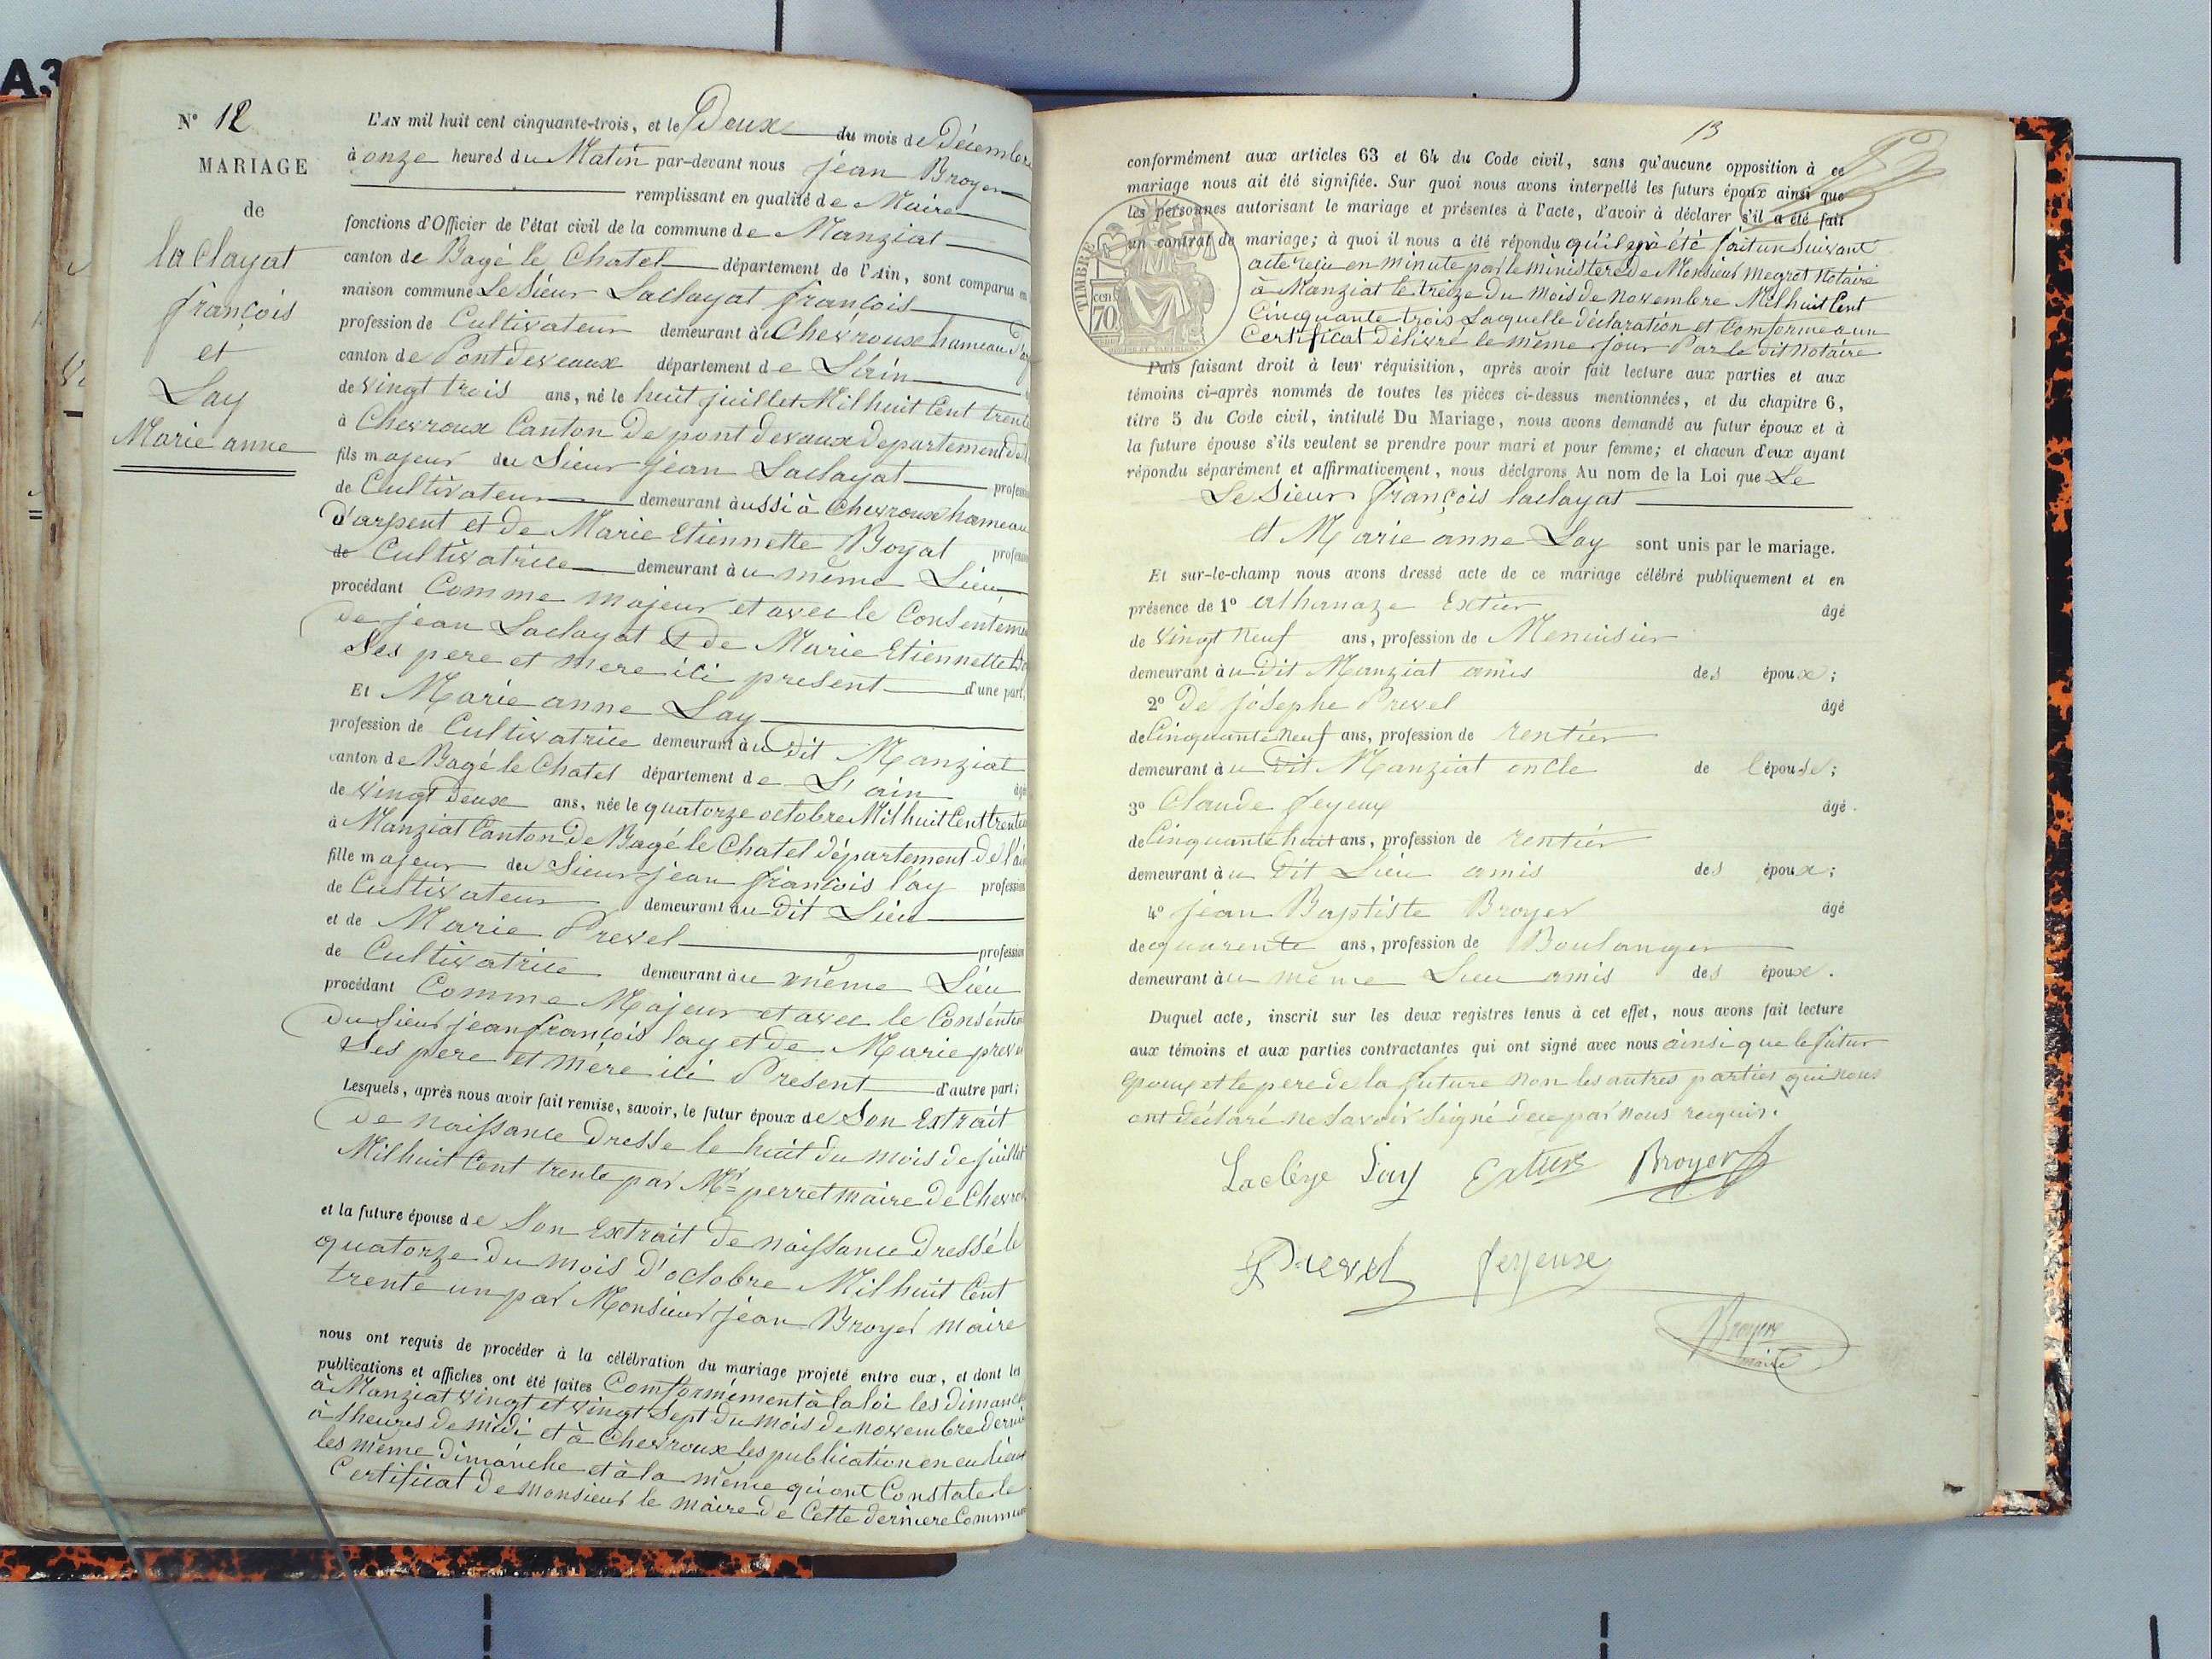 A3
N° 12
MARIAGE
de
laclayat
françois
et
Lay
Marie anne
L'AN mil huit cent cinquante-trois, et le Deux du mois de Décembre
à onze heures du Matin par-devant nous jean Broyer
remplissant en qualité de Maire
fonctions d'Officier de l'état civil de la commune de Manziat
canton de Bagé le Chatel département de l'Ain, sont comparus en
maison commune Le Sieur Laclayat françois
profession de Cultivateur demeurant à Chevroux hameau
canton de Pontdevaux département de L'ain
de vingt trois ans, né le huit juillet Mil huit Cent trente
à Chevroux Canton De pont devaux departement de
fils majeur du Sieur jean Laclayat profession
de Cultivateur demeurant aussi à Chevroux hameau
d'arpent et de Marie Etiennette Boyat profession
de Cultivatrice demeurant au même Lieu
procédant Comme majeur et avec le Consenteme
de jean Laclayat et de Marie Etiennette
Ses pere et mere ici present d'une part,
Et Marie anne Lay
profession de Cultivatrice demeurant au dit Manziat
canton de Bagé le Chatel département de L'ain âgé
de vingt deux ans, née le quatorze octobre Mil huit Cent trente
à Manziat Canton De Bagé le Chatel département de l'ain
fille majeur du Sieur jean françois lay profession
de Cultivateur demeurant au Dit Lieu
et de Marie Prevel profession
de Cultivatrice demeurant au même Lieu
procédant Comme Majeur et avec le Consente
du Sieur jean françois lay et de Marie prevel
Ses pere et mère ici Present d'autre part;
Lesquels, après nous avoir fait remise, savoir, le futur époux de Son Extrait
de naissance dresse le huit du mois de juillet
Mil huit Cent trente par Mr perret maire de Chevro
et la future épouse de Son Extrait de naissance dressé le
quatorze du mois d'octobre Mil huit Cent
trente un par Monsieur jean Broyer maire
nous ont requis de procéder à la célébration du mariage projeté entre eux, et dont les
publications et affiches ont été faites Comformément à la loi les dimanches
à Manziat vingt et vingt Sept du mois de novembre dernier
à heures de midi et à Chevroux les publication en eu lieu
les même dimanche et à la même qui ont Constate le
Certificat de monsieur le maire de Cette derniere Commune
13
conformément aux articles 63 et 64 du Code civil, sans qu'aucune opposition à ce
mariage nous ait été signifiée. Sur quoi nous avons interpellé les futurs époux ainsi que
les personnes autorisant le mariage et présentes à l'acte, d'avoir à déclarer s'il a été fait
un contrat de mariage; à quoi il nous a été répondu qu'il y a été fait un Suivant
acte reçu en minute par le ministère de Monsieur megrat Notaire
à Manziat le treize du mois de novembre Mil huit Cent
Cinquante trois Laquelle déclaration et Comforme a un
Certificat Délivré le même jour Par le dit Notaire
TIMBRE
70 cen
Puis faisant droit à leur réquisition, après avoir fait lecture aux parties et aux
témoins ci-après nommés de toutes les pièces ci-dessus mentionnées, et du chapitre 6,
titre 5 du Code civil, intitulé Du Mariage, nous avons demandé au futur époux et à
la future épouse s'ils veulent se prendre pour mari et pour femme; et chacun d'eux ayant
répondu séparément et affirmativement, nous déclarons Au nom de la Loi que Le
Le Sieur françois laclayat
et Marie anne Lay sont unis par le mariage.
Et sur-le-champ nous avons dressé acte de ce mariage célébré publiquement et en
présence de 1° Athanaze Extier âgé
de vingt Neuf ans, profession de Menuisier
demeurant au dit Manziat amis des époux;
2° De jósephe Prevel âgé
de Cinquante Neuf ans, profession de rentier
demeurant au dit Manziat oncle de l'épouse;
3° Claude feyeux âgé
de Cinquante huit ans, profession de rentier
demeurant au Dit Lieu amis des époux;
4° jean Baptiste Broyer âgé
de quarente ans, profession de Boulanger
demeurant au même Lieu amis des époux.
Duquel acte, inscrit sur les deux registres tenus à cet effet, nous avons fait lecture
aux témoins et aux parties contractantes qui ont signé avec nous ainsi que le futur
epoux et le pere de la future non les autres parties qui nous
ont déclaré ne Savoir Signé de ce par nous requis.
Lacléye Lay Extier Broyer
Prevel feyeux
Broyer
maire